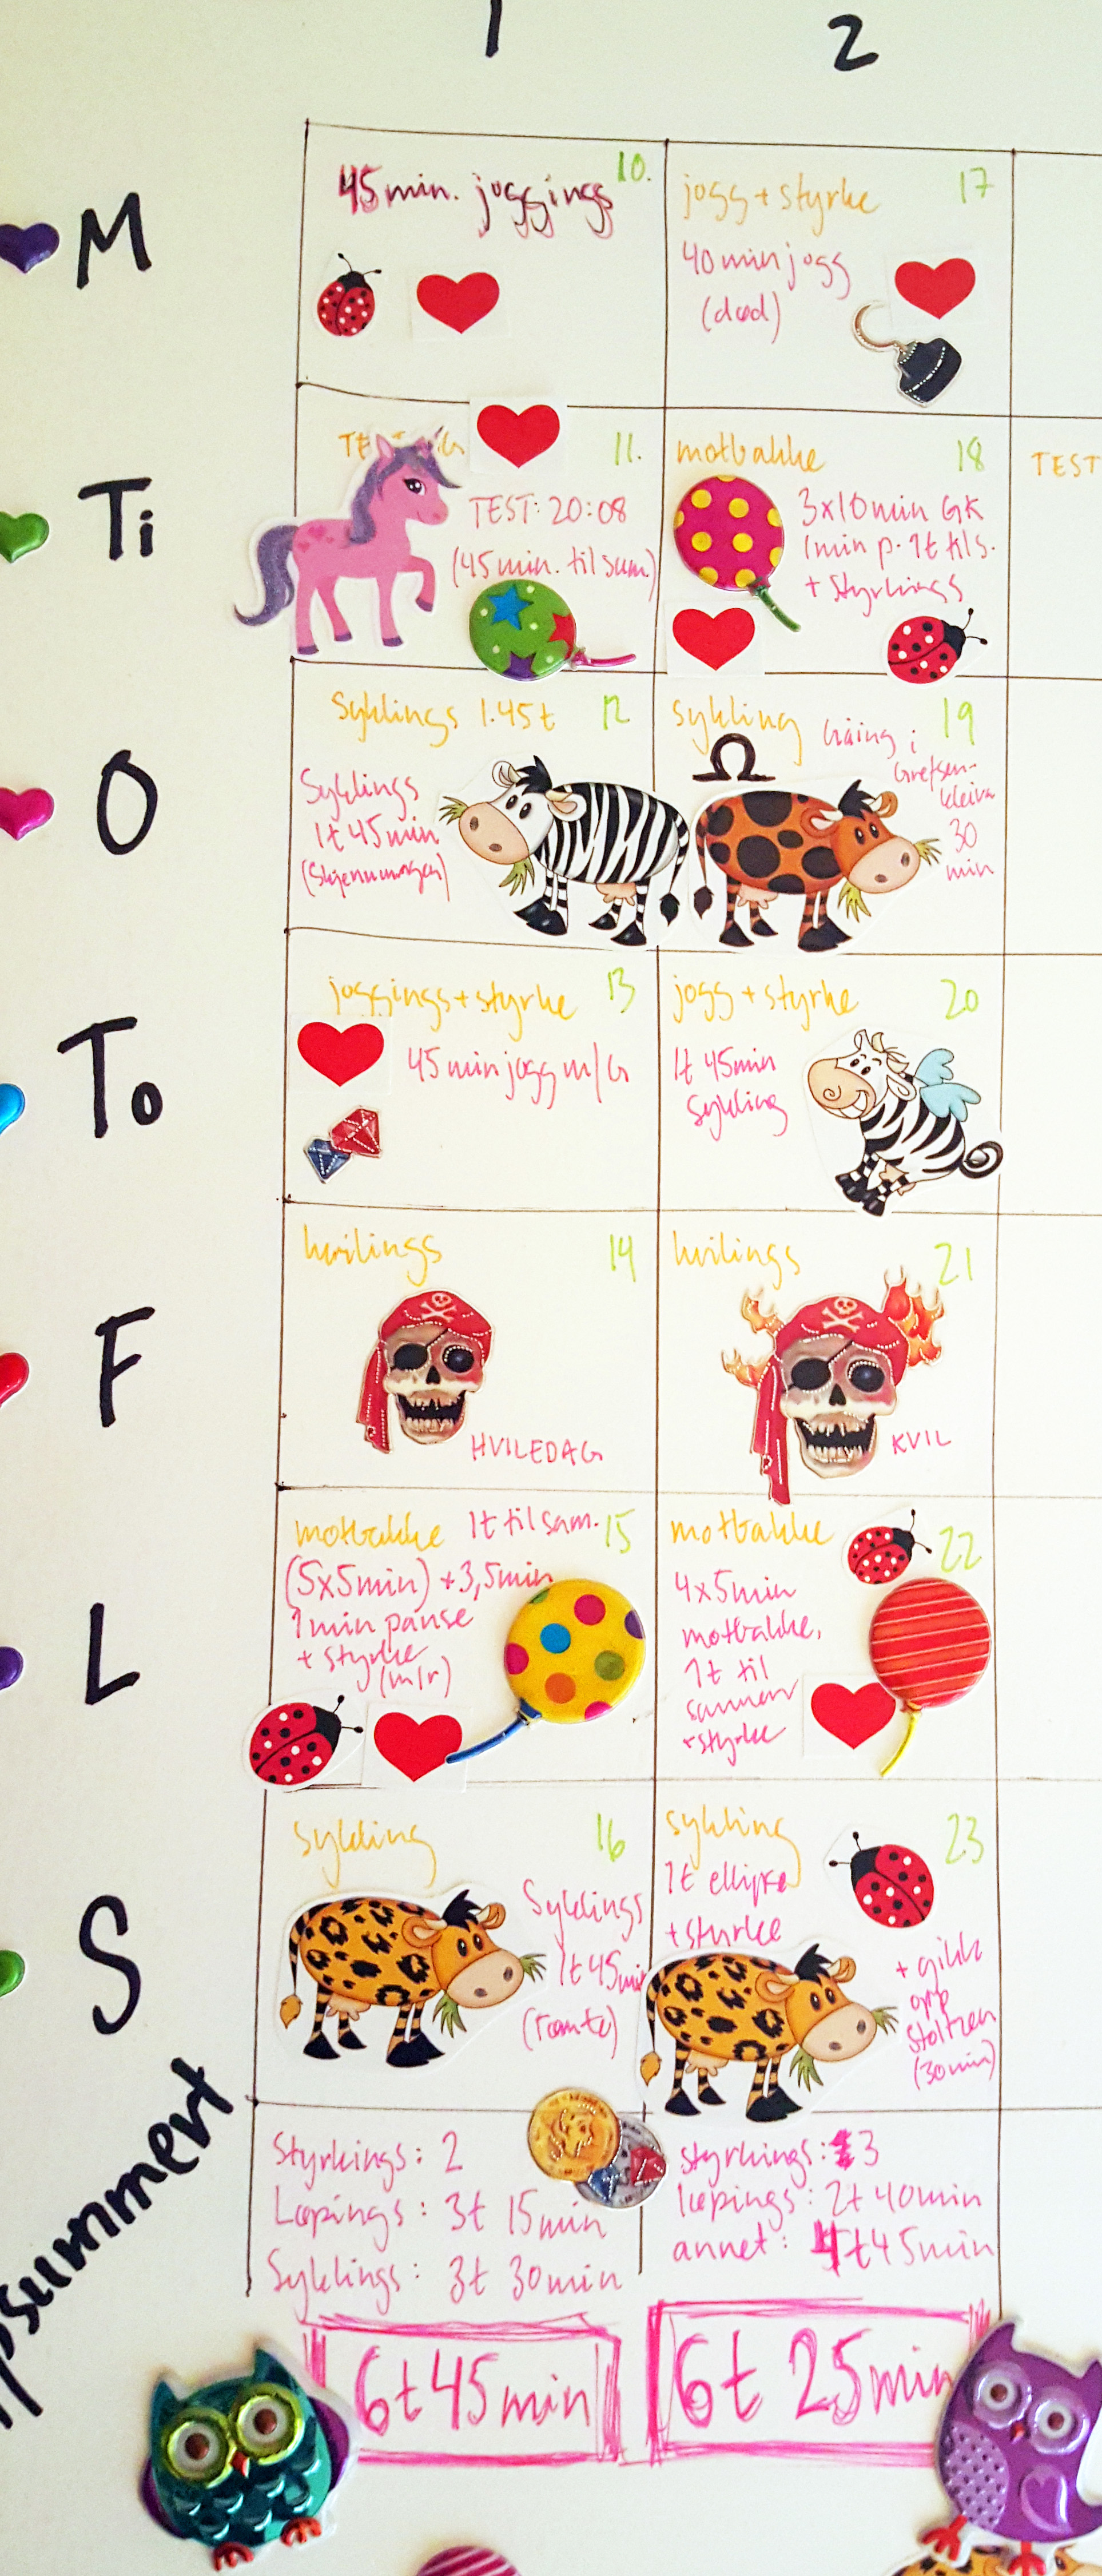 1 2
M
45 min. joggings 10.
jogg + styrke 17
40 min jogg
(død)
Ti
11.
TEST: 20:08
(45 min. til sam.)
motbakke 18
3x10 min GK
1 min p. 1t tils.
+ styrkings
TEST
O
Syklings 1.45 t 12
Syklings
1t 45 min
sykling 19
i
Grefsen-
kleiva
30
min
To
joggings + styrke 13
45 min jogg m/G
jogg + styrke 20
1t 45min
sykling
F
hvilings 14
HVILEDAG
hvilings 21
KVIL
L
motbakke 1t til sam. 15
(5x5min) + 3,5min
1 min pause
+ styrke
(m/r)
motbakke 22
4x5min
motbakke,
1t til
sammen
+styrke
S
sykling 16
Syklings
1t 45min
sykling 23
1t ellipse
+ styrke
+ gikk
opp
Stoltzen
(30min)
Styrkings: 2
Løpings: 3t 15min
Syklings: 3t 30min
styrkings: 3
løpings: 2t 40min
annet: 4t 45min
6t 45 min
6t 25 min